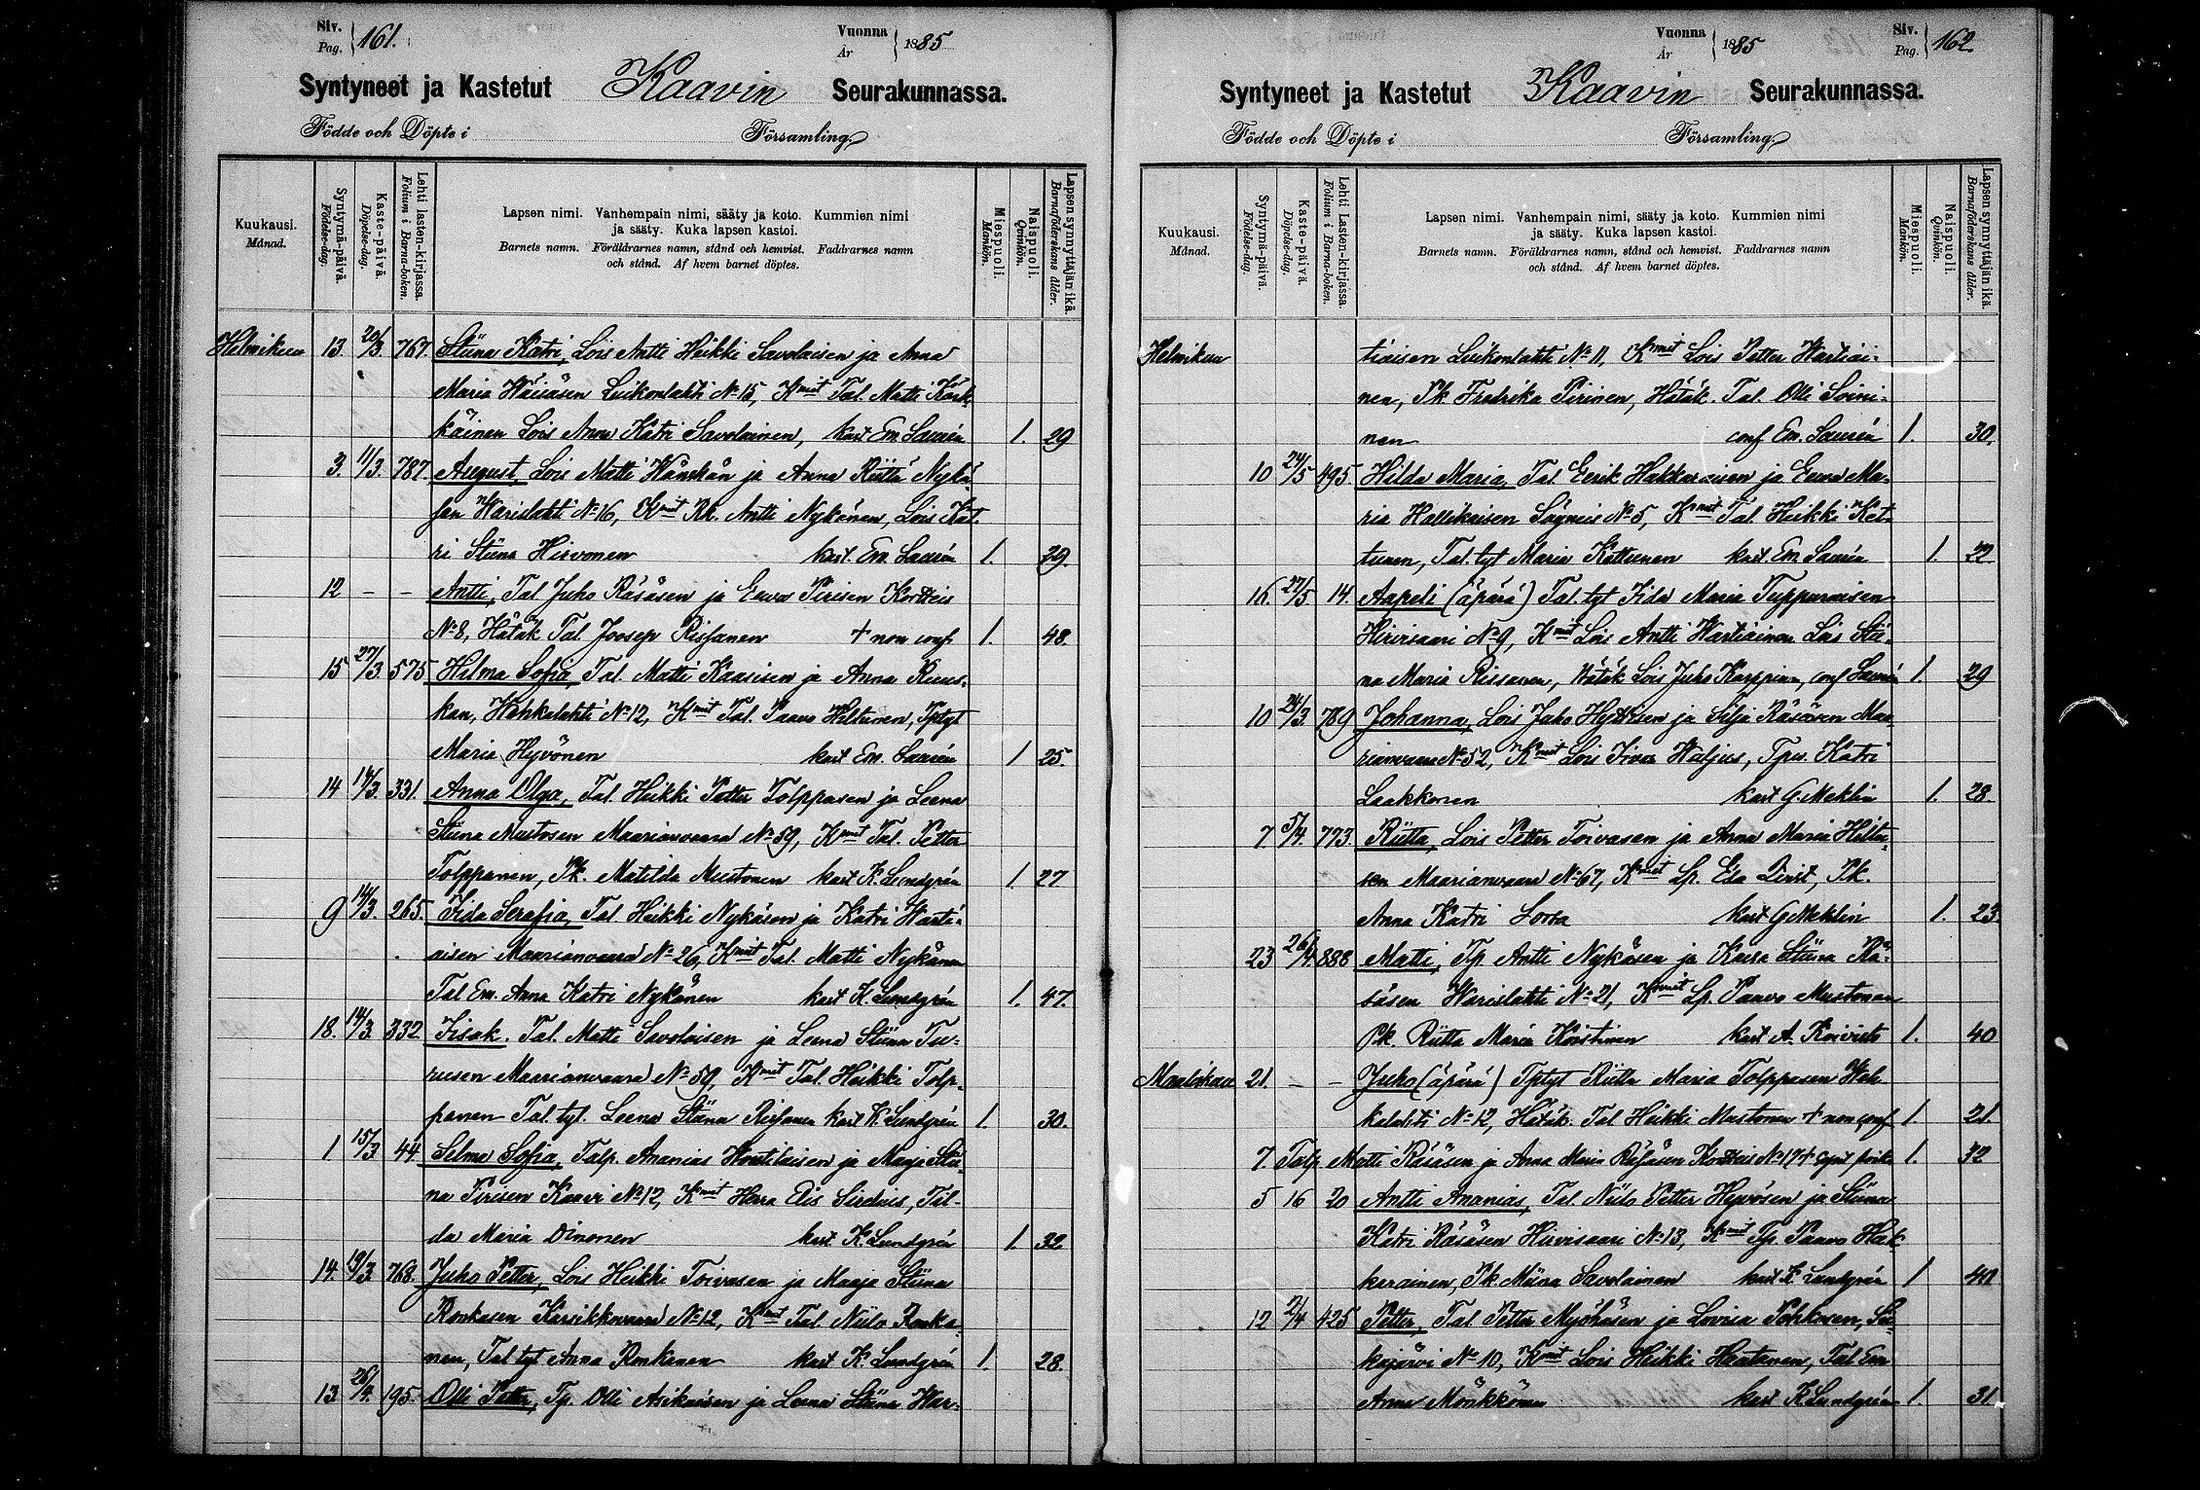 Siv. Pag. 161. Vuonna År 1885
Syntyneet ja Kastetut Kaavin Seurakunnassa.
Födde och Döpte i Församling.
Kuukausi. Månad.
Syntymä-päivä. Födelse-dag.
Kaste-päivä. Döpelse-dag.
Lehti lasten-kirjassa. Folium i Barna-boken.
Lapsen nimi. Vanhempain nimi, sääty ja koto. Kummien nimi
ja sääty. Kuka lapsen kastoi.
Barnets namn. Föräldrarnes namn, stånd och hemvist. Faddrarnes namn
och stånd. Af hvem barnet döptes.
Miespuoli. Mankön.
Naispuoli. Qvinkön.
Lapsen synnyttäjän ikä. Barnaföderskans ålder.
Helmikuu 13 20/3. 767. Stiina Katri, Lois Antti Heikki Savolaisen ja Anna
Maria Wäisäsen Luikonlahti No 15, Kmit Tal. Matti Kärk-
käinen Lois Anna Katri Savolainen, kast Em. Laurén 1. 29
3. 11/3. 787. August, Lois Matti Hänskän ja Anna Riitta Nykä-
sen Warislahti No 16, Kmit Rk. Antti Nykänen, Lois Kat-
ri Stiina Hirvonen kast. Em. Laurén 1. 29.
12 - - Antti, Tal Juho Räsäsen ja Eeva Pirisen Kortteis
No 8, Hätäk Tal. Joosep Rissanen + non conf. 1. 48.
15 27/3. 575 Helma Sofia, Tal. Matti Kaasisen ja Anna Ruus-
kan, Wehkalahti No 12, Kmit Tal. Paavo Hiltunen, Tptyt
Maria Hyvönen kast Em. Laurén 1 25.
14 14/3. 331. Anna Olga, Tal. Heikki Petter Tolppasen ja Leena
Stiina Mustosen Maarianvaara No 59, Kmit Tal. Petter
Tolppanen, Pk. Matilda Mustonen kast K. Lundgrén 1. 27
9 14/3. 265. Iida Serafia, Tal. Heikki Nykäsen ja Katri Warti-
aisen Maarianvaara No 26, Kmit Tal. Matti Nykänen
Tal Em. Anna Katri Nykänen kast K. Lundgrén 1. 47.
18. 14/3. 332 Iisak. Tal. Matti Savolaisen ja Leena Stiina Tu-
rusen Maarianvaara No 59, Kmit Tal. Heikki Tolp-
panen Tal. tyt. Leena Stiina Rissanen kast K. Lundgrén 1. 30.
1 15/3 44 Selma Sofia, Talp. Ananias Wontilaisen ja Maaja Stii-
na Pirisen Kaavi No 12, Kmit Herra Elis Sirelius, Til-
da Maria Dinonen kast. K. Lundgrén 1. 32
14. 19/3. 768. Juho Petter, Lois Heikki Toivasen ja Maaja Stiina
Ronkasen Karsikkovaara No 12, Kmit Tal Niilo Ronka-
nen, Tal tyt Anna Ronkanen kast K. Lundgrén 1. 28.
13. 26/4. 195. Olli Petter, Tp. Olli Asikaisen ja Leena Stiina War-
Vuonna År 1885 Siv. Pag. 162
Syntyneet ja Kastetut Kaavin Seurakunnassa.
Födde och Döpte i Församling.
Kuukausi. Månad.
Syntymä-päivä. Födelse-dag.
Kaste-päivä. Döpelse-dag.
Lehti Lasten-kirjassa. Folium i Barna-boken.
Lapsen nimi. Vanhempain nimi, sääty ja koto. Kummien nimi
ja sääty. Kuka lapsen kastoi.
Barnets namn. Föräldrarnes namn, stånd och hemvist. Faddrarnes namn
och stånd. Af hvem barnet döptes.
Miespuoli. Mankön.
Naispuoli. Qvinkön.
Lapsen synnyttäjän ikä. Barnaföderskans ålder.
Helmikuu tiaisen Luikonlahti No 11, Kmit Lois Petter Wartiai-
nen, Pk. Fredrika Pirinen, Hätäk. Tal. Olli Soini-
nen conf Em. Laurén 1. 30.
10 24/5 495. Hilda Maria, Tal. Eerik Hakkaraisen ja Eeva Ma-
ria Hallikaisen Säyneis No 5, Kmit Tal. Heikki Ket-
tunen, Tal. tyt Maria Kettunen kast Em. Laurén 1. 22
16. 27/5 14. Aapeli (äpärä) Tal. tyt Iida Maria Tuppuraisen
Hirvisaari No 9, Kmit Lois Antti Wartiainen Lois Stii-
na Maria Rissanen, Hätäk Lois Juho Karppinen, conf Laurén 1. 29
10 24/3 789 Johanna, Lois Juho Hyttisen ja Silja Räsäsen Maa-
rianvaara No 52, Kmit Lois Iivar Waljus, Tpu. Katri
Laakkonen kast G. Meklin 1. 28.
7 5/4. 773. Riitta, Lois Petter Toivasen ja Anna Maria Hiltu-
sen Maarianvaara No 67, Kmit Lp. Esa Pirit, Pk.
Anna Katri Lossa kast G. Meklin 1. 23
23 26/4 888 Matti, Tp Antti Nykäsen ja Kaisa Stiina Rä-
säsen Warislahti No 21, Kmit Lp. Paavo Mustonen
Pk. Riitta Maria Korstinen kast A. Koivisto 1. 40
Maaliskuu 21. - - Juho (äpärä) Tptyt Riitta Maria Tolppasen Weh-
kalahti No 12, Hätäk. Tal Heikki Mustonen + non conf 1. 21.
7. Talp Matti Räsäsen ja Anna Maria Räsäsen Kortteis No 17 + 1. 32
5 16 20 Antti Ananias, Tal. Niilo Petter Hyvösen ja Stiina
Katri Räsäsen Hirvisaari No 13, Kmit Tp. Paavo Hak-
karainen, Pk Miina Savolainen kast K. Lundgrén 1 40
12 2/4 425 Petter, Tal Petter Myöhäsen ja Lovisa Pohkosen, Si-
kajärvi No 10, Kmit Lois Heikki Hautanen, Tal Em
Anna Mönkkönen kast K. Lundgrén 1. 31.